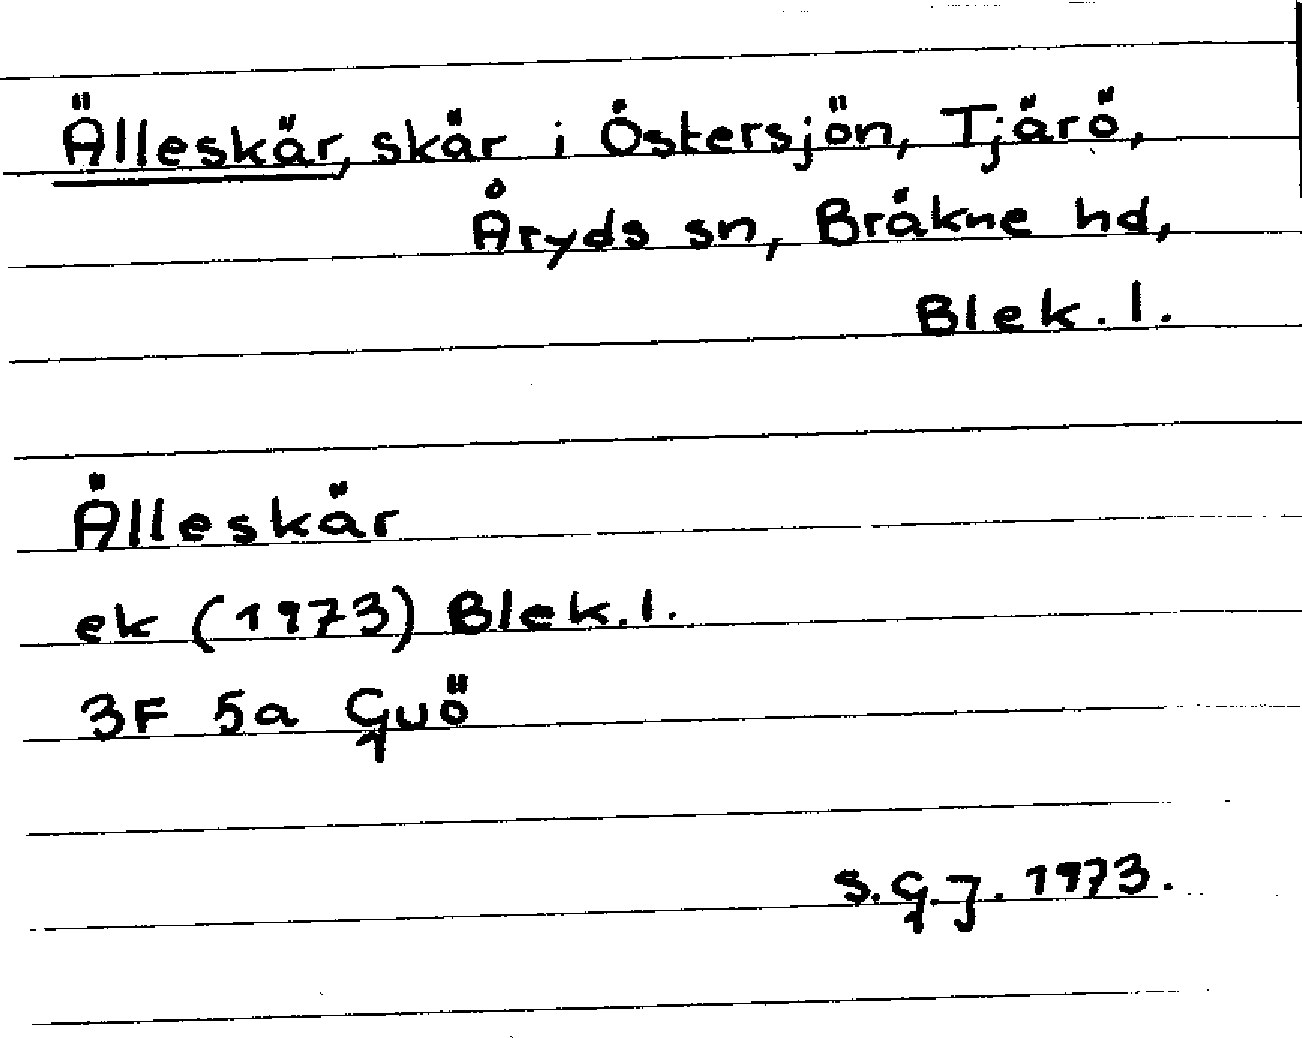 Älleskär, skär i Östersjön, Tjärö,
Åryds sn, Bräkne hd,
Blek. l.
Älleskär
ek (1973) Blek. l.
3F 5a Guö
S.G.J. 1973.